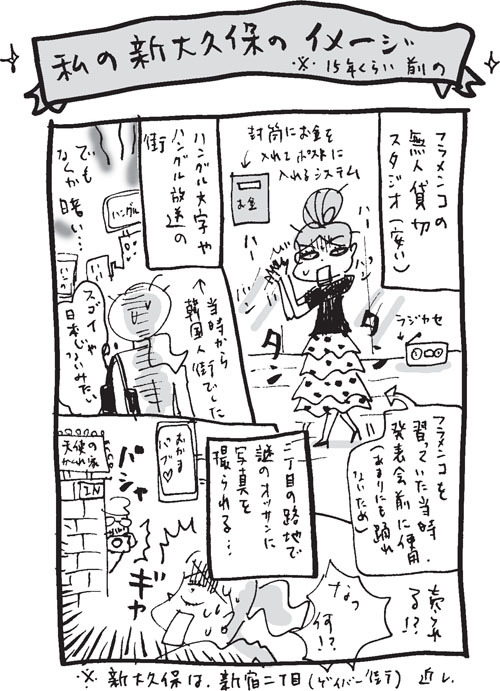 私の新大久保のイメージ
※15年くらい前の
フラメンコの
無人貸切
スタジオ(安い)
封筒にお金を
入れてポストに
入れるシステム
お金
ハー
ハー
パン
パン
タン
タン
ラジカセ
フラメンコを
習っていた当時
発表会前に使用.
(あまりにも踊れ
ないため)
ハングル文字や
ハングル放送の
街
当時から
韓国人街でした
でも
なんか
暗い…
ハングル
スゴイや
日本じゃないみたい
二丁目の路地で
謎のオッサンに
写真を
撮られる…
むかま
パブ♡
天使の
かくれ家
IN
パシャ
ギャ
なっ
何!?
売られ
る!?
※新大久保は、新宿二丁目(ゲイバー街) 近し